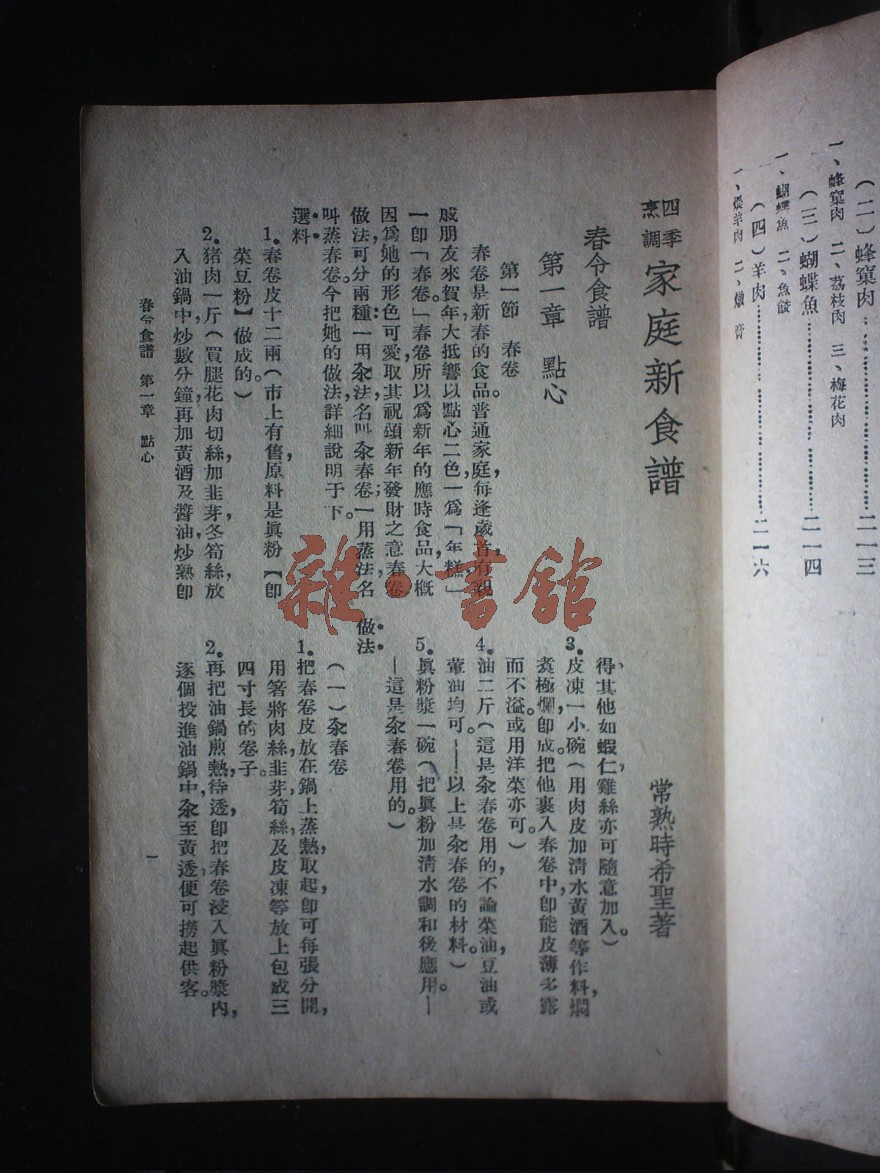 (二)蜂窠肉……二一三
一、蜂窠肉 二、荔枝肉 三、梅花肉
(三)蝴蝶魚……二一四
一、蝴蝶魚 二、魚餤
(四)羊肉……二一六
四季烹調 家庭新食譜
常熟時希聖著
春令食譜
第一章 點心
第一節 春卷
春卷是新春的食品。普通家庭,每逢歲首,有親
戚朋友來賀年,大抵饗以點心二色,一爲「年糕」,
一卽「春卷」。春卷所以爲新年的應時食品,大概
因爲她的形色可愛,取其祝頌新年發財之意。春卷
做法,可分兩種:一用汆法,名叫汆春卷;一用蒸法,名
叫蒸春卷。今把她的做法,詳細說明于下。
選料
1.春卷皮十二兩(市上有售,原料是眞粉【卽
菜豆粉】做成的。)
2.猪肉一斤(買腿花肉切絲,加韭芽冬筍絲,放
入油鍋中,炒數分鐘,再加黃酒及醬油,炒熟卽
得,其他如蝦仁,雞絲亦可隨意加入。)
3.皮凍一小碗(用肉皮加清水黃酒等作料,燜
煑極爛,卽成。把他裹入春卷中,卽能皮薄多露
而不溢。或用洋菜亦可。)
4.油二斤(這是汆春卷用的,不論菜油豆油或
葷油均可。——以上是汆春卷的材料。)
5.眞粉漿一碗(把眞粉加清水調和後應用。—
—這是汆春卷用的。)
做法
(一)汆春卷
1.把春卷皮放在鍋上蒸熱,取起,卽可每張分開,
用箸將肉絲,韭芽,筍絲及皮凍等放上,包成三
四寸長的卷子。
2.再把油鍋煎熱,待透,卽把春卷浸入眞粉漿內,
逐個投進油鍋中,汆至黃透,便可撈起供客。
春令食譜 第一章 點心
一
雜·書館